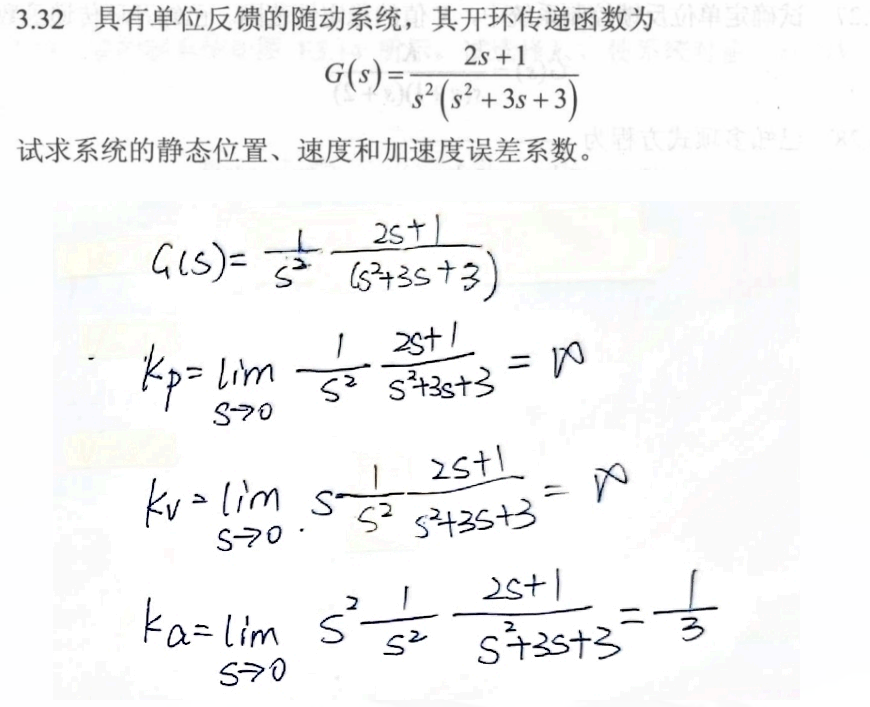 3.32 具有单位反馈的随动系统，其开环传递函数为
G(s)=\frac{2s+1}{s^2(s^2+3s+3)}
试求系统的静态位置、速度和加速度误差系数。
G(s)=\frac{1}{s^2}\frac{2s+1}{(s^2+3s+3)}
kp=\lim_{s→0}\frac{1}{s^2}\frac{2s+1}{s^2+3s+3}=∞
kv=\lim_{s→0}s\frac{1}{s^2}\frac{2s+1}{s^2+3s+3}=∞
ka=\lim_{s→0}s^2\frac{1}{s^2}\frac{2s+1}{s^2+3s+3}=\frac{1}{3}